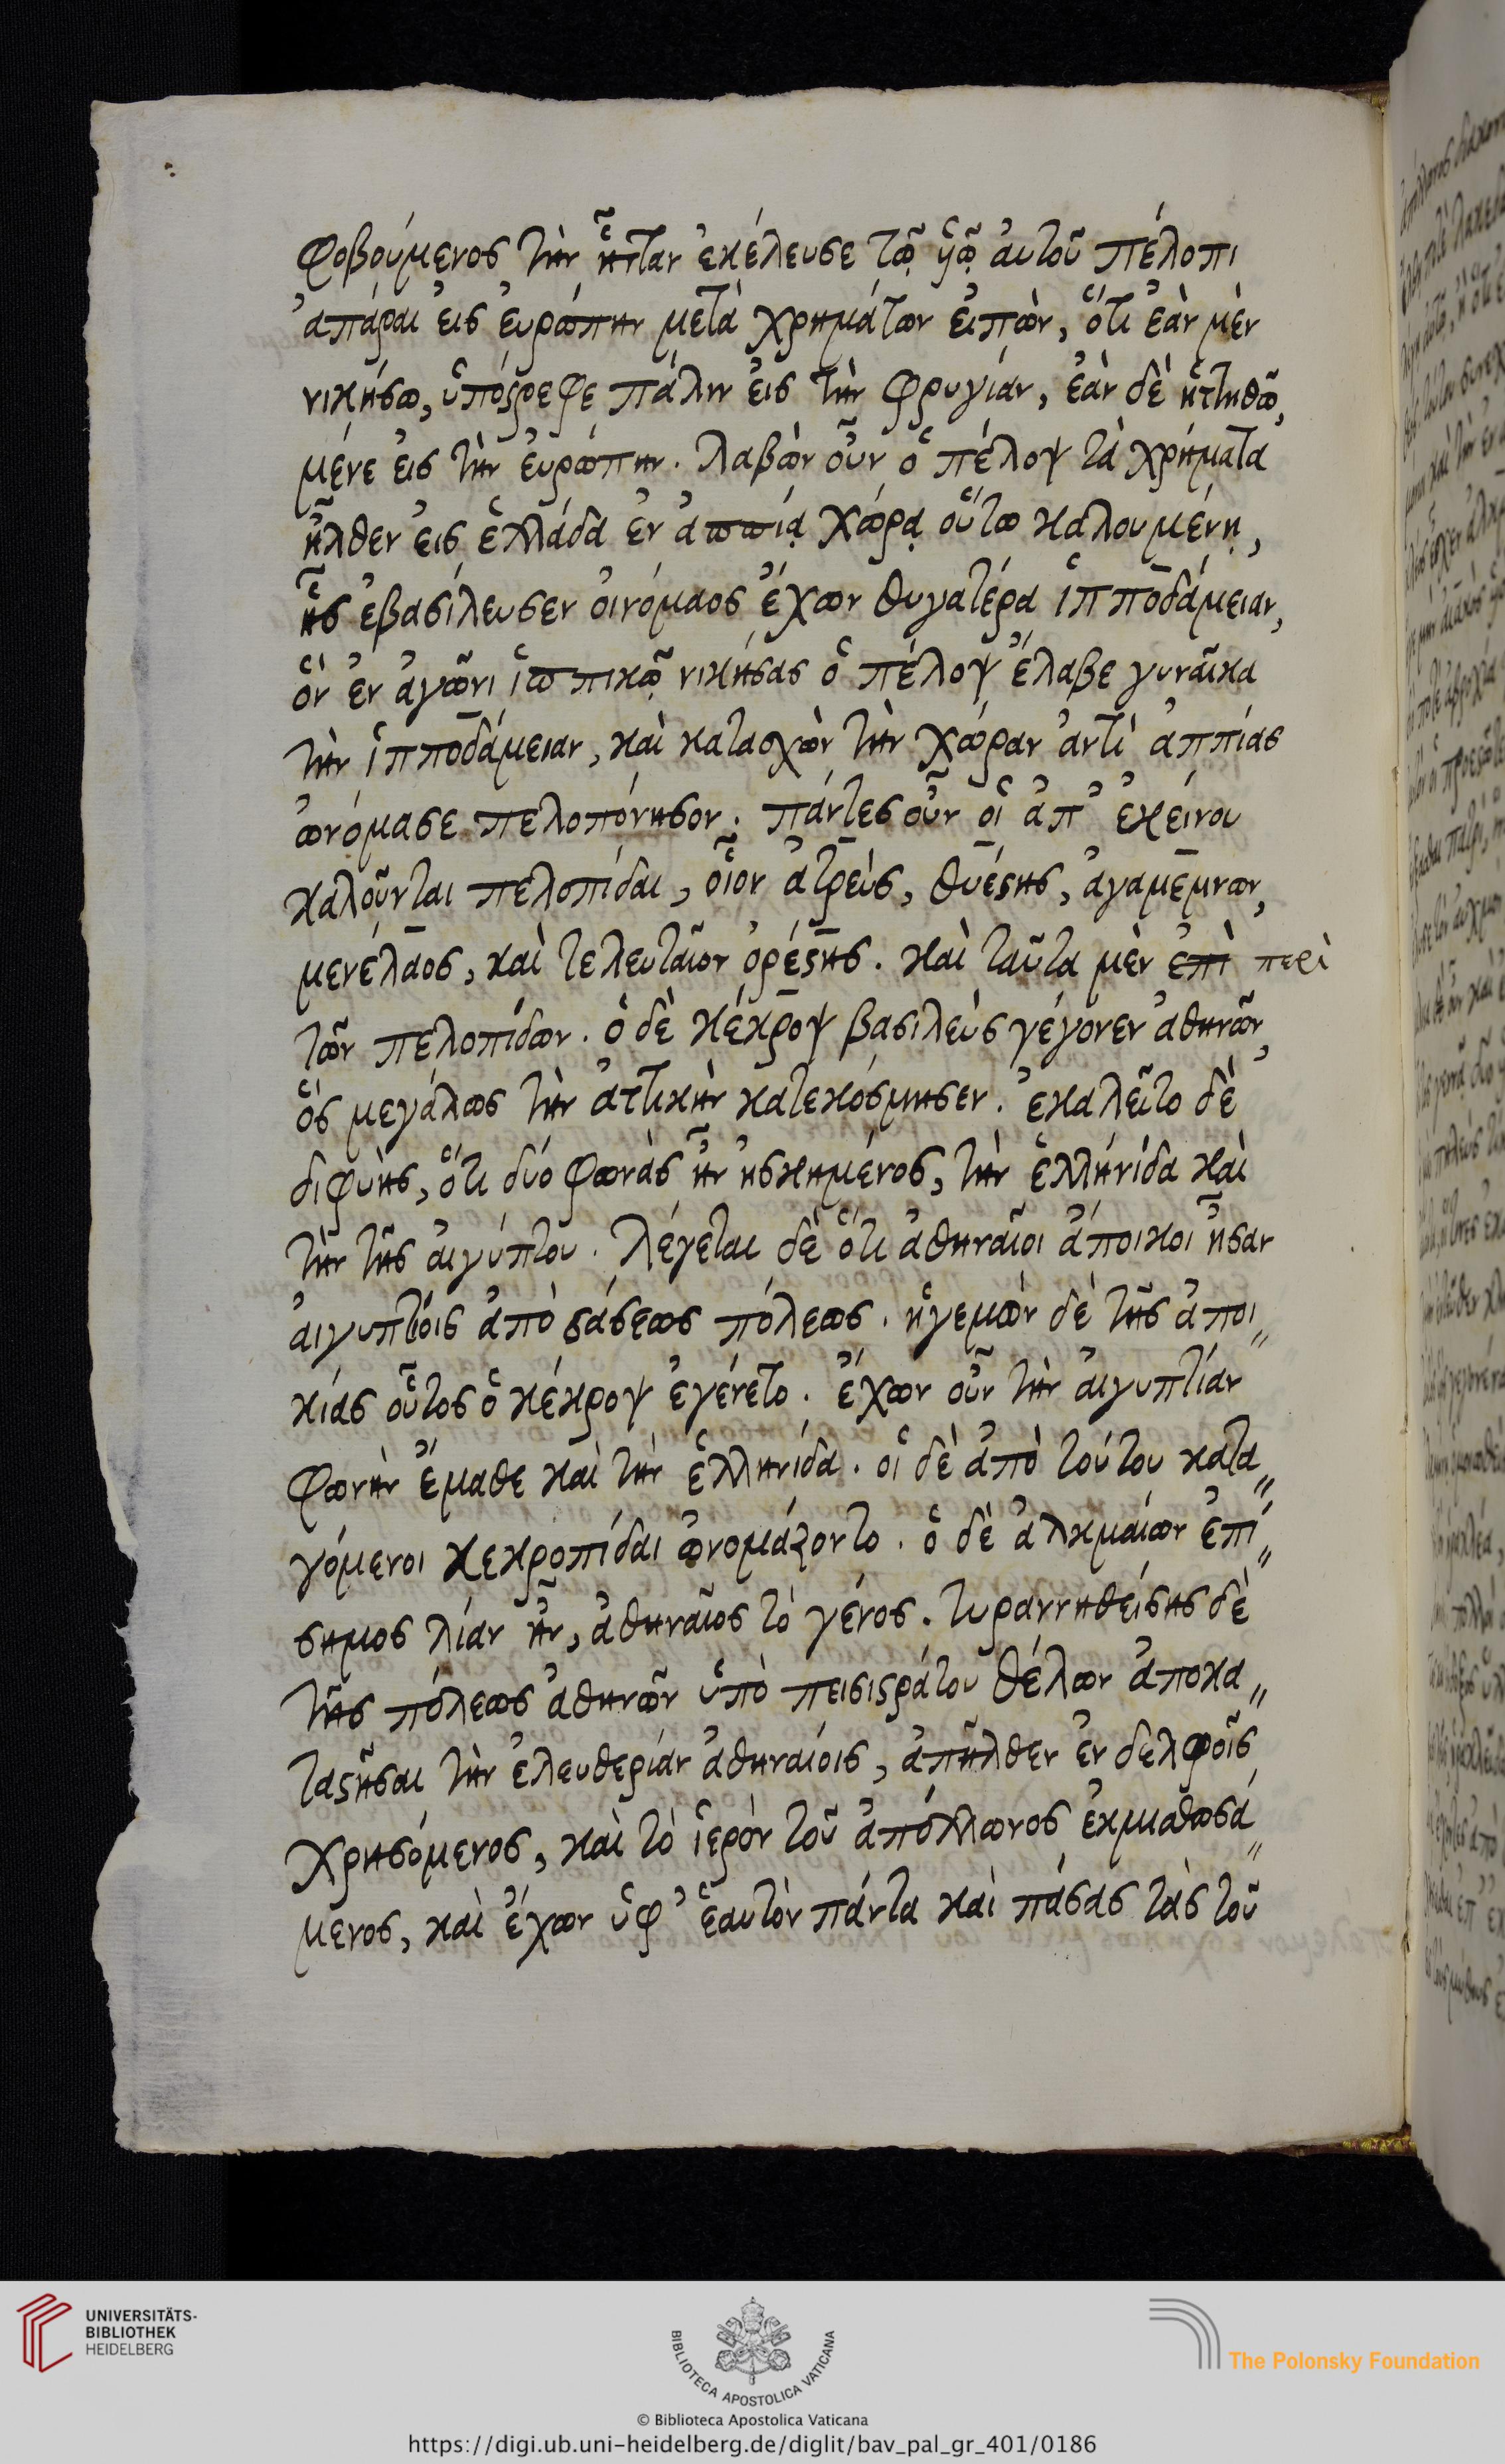 φοβούμενος τὴν ἧτταν ἐκέλευσε τῷ ὑῷ ἀυτοῦ πέλοπι
ἀπᾶραι ἐις ἐυρώπην μετὰ χρημάτων ἐιπὼν, ὅτι ἐὰν μὲν
νικήσω, ὑπόστρεφε πάλιν ἐις τὴν φρυγίαν, ἐὰν δὲ ἡττηθῶ,
μένε ἐις τὴν ἐυρώπην. λαβὼν οὖν ὁ πέλοψ τὰ χρήματα
ἦλθεν ἐις ἑλλάδα ἐν ἀππίᾳ χώρᾳ οὕτω καλουμένῃ,
ἧς ἐβασίλευσεν ὀινόμαος ἔχων θυγατέρα ἱπποδάμειαν,
ὃν ἐν ἀγῶνι ἱππικῷ νικήσας ὁ πέλοψ ἔλαβε γυναῖκα
τὴν ἱπποδάμειαν, καὶ κατασχὼν τὴν χώραν ἀντὶ ἀππίας
ὠνόμασε πελοπόνησον. πάντες οὖν οἱ ἀπ' ἐκείνου
καλοῦνται πελοπίδαι, οἷον ἀτρεὺς, θυέστης, ἀγαμέμνων,
μενέλαος, καὶ τελευταῖον ὀρέστης. καὶ ταῦτα μὲν ἐπὶ περὶ
τῶν πελοπίδων. ὁ δὲ κέκροψ βασιλεὺς γέγονεν ἀθηνῶν,
ὃς μεγάλως τὴν ἀττικὴν κατεκόσμησεν. ἐκαλεῖτο δὲ
διφυὴς, ὅτι δύο φωνὰς ἦν ἠσκημένος, τὴν ἑλληνίδα καὶ
τὴν τῆς ἀιγύπτου. λέγεται δὲ ὅτι ἀθηναῖοι ἄποικοι ἦσαν
ἀιγυπτίοις ἀπὸ σάσεως πόλεως. ἡγεμὼν δὲ τῆς ἀποι〃
κίας οὗτος ὁ κέκροψ ἐγένετο. ἔχων οὖν τὴν ἀιγυπτίαν
φωνὴν ἔμαθε καὶ τὴν ἑλληνίδα. οἱ δὲ ἀπὸ τούτου κατα〃
γόμενοι κεκροπίδαι ὠνομάζοντο. ὁ δὲ ἀλκμαίων ἐπί〃
σημος λίαν ἦν, ἀθηναῖος τὸ γένος. τυραννηθείσης δὲ
τῆς πόλεως ἀθηνῶν ὑπὸ πεισιστράτου θέλων ἀποκα〃
ταστῆσαι τὴν ἐλευθερίαν ἀθηναίοις, ἀπῆλθεν ἐν δελφοῖς
χρησόμενος, καὶ τὸ ἱερὸν τοῦ ἀπόλλωνος ἐκμισθωσά〃
μενος, καὶ ἔχων ὑφ' ἑαυτὸν πάντα καὶ πάσας τὰς τοῦ
UNIVERSITÄTS-
BIBLIOTHEK
HEIDELBERG
BIBLIOTECA APOSTOLICA VATICANA
The Polonsky Foundation
© Biblioteca Apostolica Vaticana
https://digi.ub.uni-heidelberg.de/diglit/bav_pal_gr_401/0186